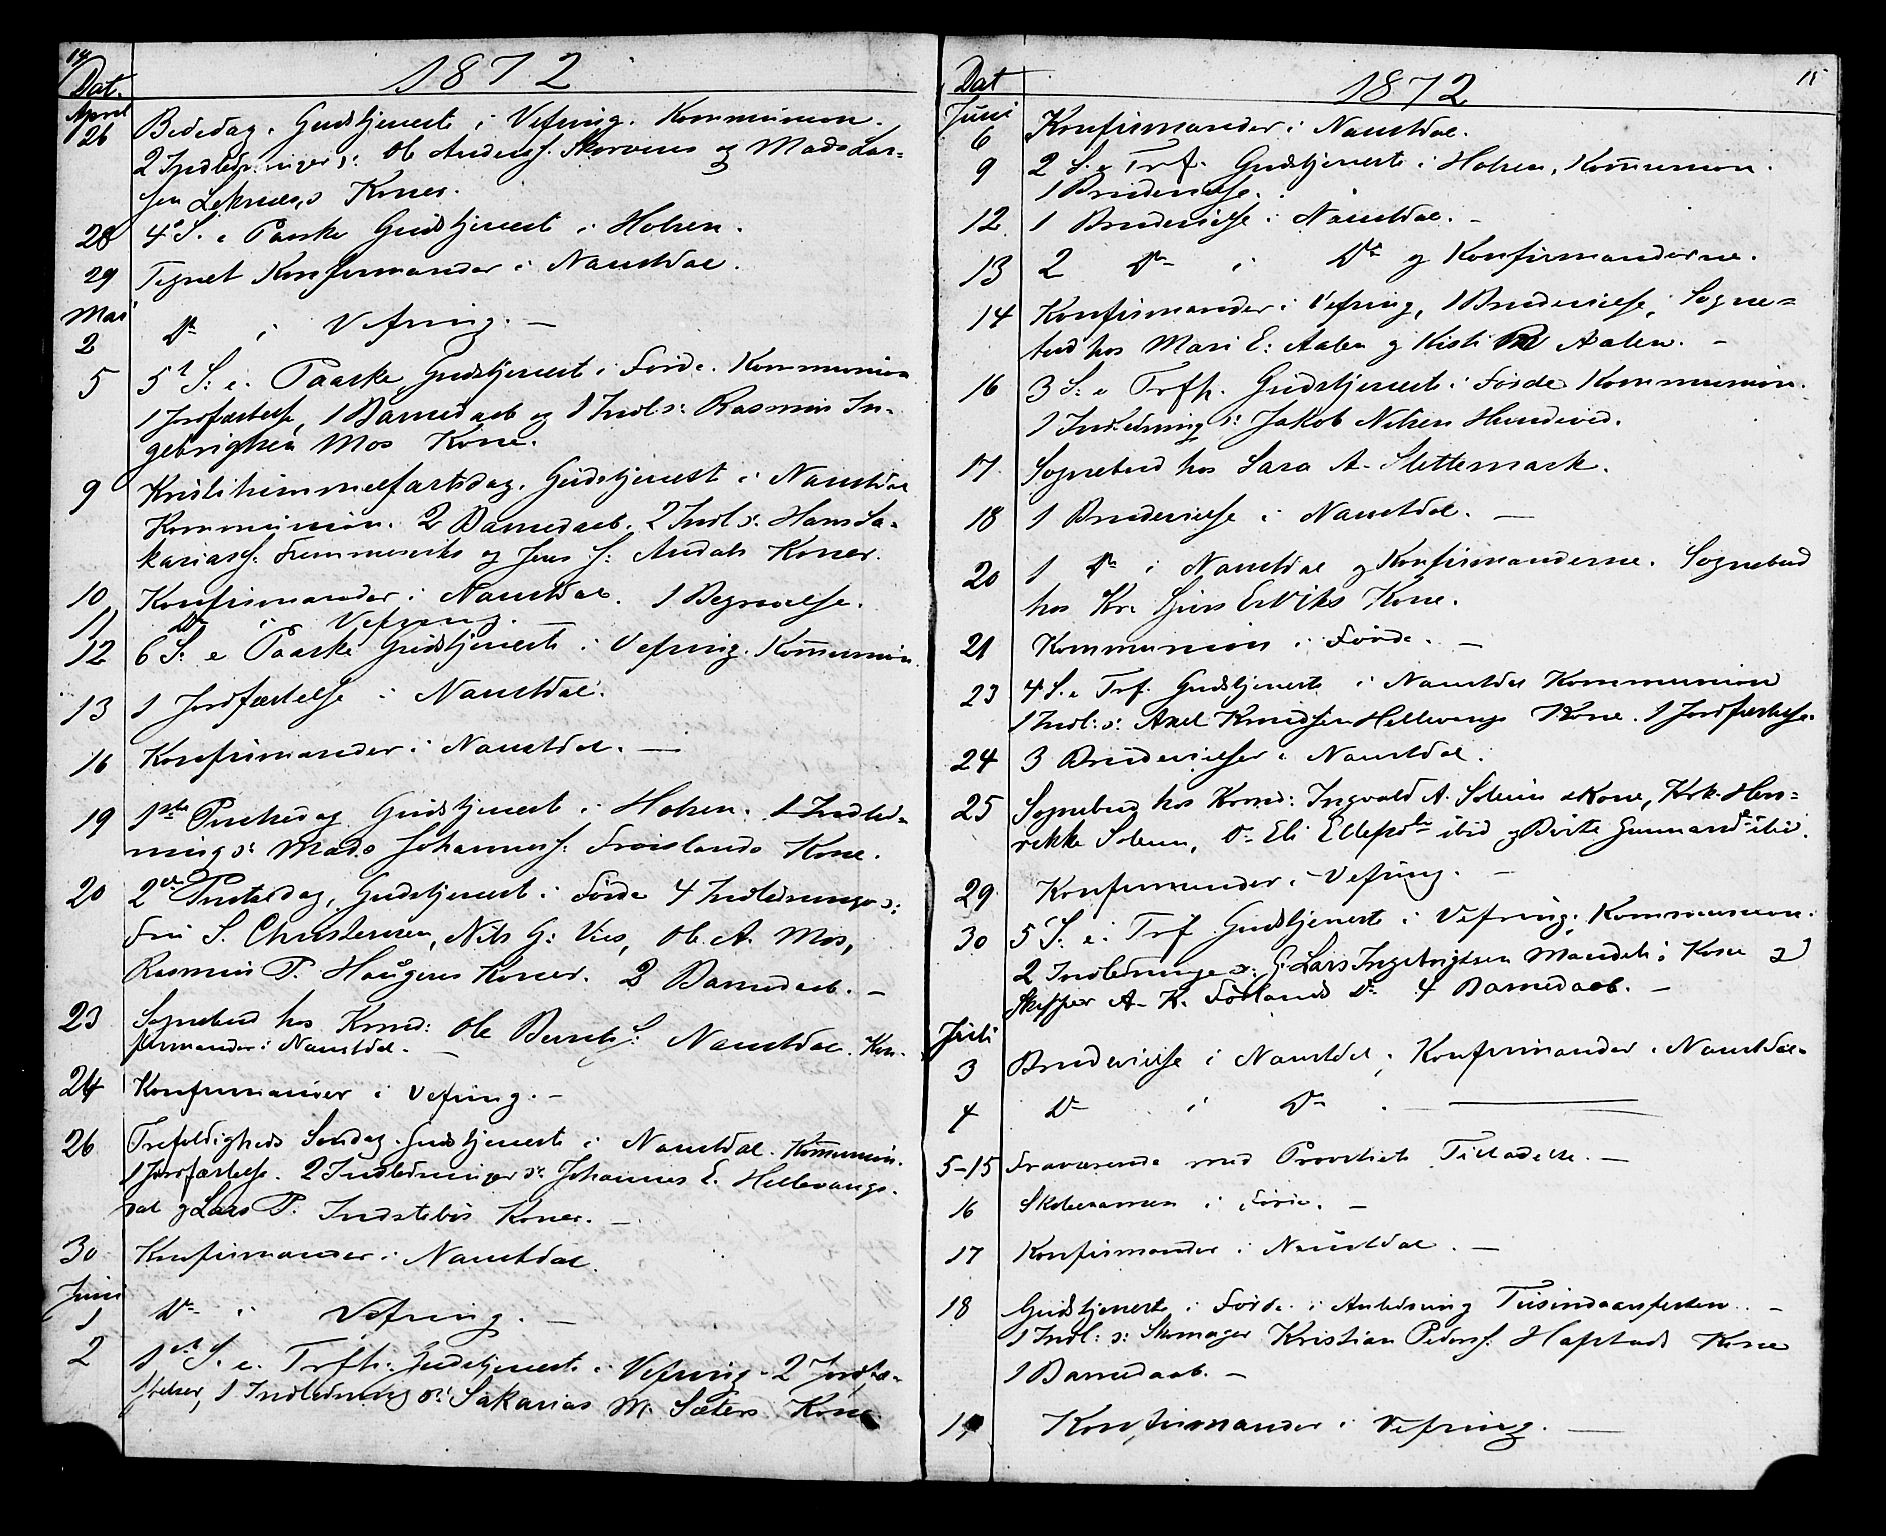 14
Dat. 1872
April
26 Bededag. Gudstjeneste i Vefring. Kommunion.
2 Indledninger ɔ: Ole Anders. og Mads Lar-
sen Leknes,s Koner.
28 4de S. e Paaske Gudstjenest i Holsen.
29 Tegnet Konfirmander i Naustdal.
Mai
2 Do i Vefring. —
5 5t S: e. Paaske Gudstjenest i Førde. Kommunion
1 Jordfæstelse, 1 Barnedaab og 1 Indl ɔ: Rasmus In-
gebrigtsen Mos Kone.
9 Kristihimmelfartsdag. Gudstjenest i Naustdal
Kommunion. 2 Barnedaab. 2 Indl ɔ: Hans Sa-
karias: og Jens S: Andals Koner.
10 Konfirmander i Naustdal. 1 Begravelse.
11 Do i Vefring. —
12 6 S: e Paaske Gudstjeneste i Vefring. Kommunion
13 1 Jordfæstelse i Naustdal.
16 Konfirmander i Naustdal. —
19 1ste Pintsedag Gudstjenest i Holsen. 1 Indled-
ning ɔ: Mads Johanness: Frøislands Kone.
20 2den Pintsedag, Gudstjenest i Førde 4 Indledninger ɔ:
Fru S. Christensen, Nils G: Vies, Ole A. Mos,
Rasmus P. Haugens Koner. 2 Barnedaab. —
23 Sognebud hos Kmd: Ole Bents S: Naustdal. Kon-
firmander i Naustdal. —
24 Konfirmander i Vefring. —
26 Trefoldigheds Søndag. Gudstjeneste i Naustdal. Kommunion.
1 Jordfæstelse. 2 Indledninger ɔ: Johannes E. Hellevangs-
dal og Lars P. Indstebøs Koner. —
30 Konfirmander i Naustdal.
Juni
1 Do i Vefring. —
2 1ste S. e. Trfh. Gudstjeneste i Vefring. 2 Jordfæ-
stelser, 1 Indledning ɔ: Sakarias M. Sæters Kone
15
Dat 1872
Juni
6 Konfirmander i Naustdal.
9 2 S. e Trf. Gudstjeneste i Holsen, Kommunion.
1 Brudevielse.
12 1 Brudevielse i Naustdal. —
13 2 Do i Do og Konfirmanderne.
14 Konfirmander i Vefring, 1 Brudevielse, Sogne-
bud hos Mari E: Aalen og Kisti Aalen. —
16 3 S: e Trfh. Gudstjeneste i Førde Kommunion.
1 Indledning ɔ: Jakob Nilsen Hundvid.
17. Sognebud hos Sara A. Slettemark.
18 1 Brudevielse i Naustdal. —
20 1 Do i Naustdal og Konfirmanderne. Sognebud
hos Kr. Erviks Kone.
21 Kommunion i Førde. —
23 4 S. e Trf. Gudstjeneste i Naustdal Kommunion
1 Indl: ɔ: Axel Knudsen Hellevangs Kone. 1 Jordfæstelse.
24 3 Brudevielser i Naustdal.
25 Sognebud hos Kmd: Ingvald A. Solem & Kone, Hen-
rikke Solem, Do Eli ibid og Birte ibid.
29. Konfirmander i Vefring. —
30 5 S: e: Trf Gudstjeneste i Vefring. Kommunion.
2 Indledninger ɔ: G. Lars Ingebrigtsen Kone og
Skipper A. K.Førlands Do 4 Barnedaab. —
Juli
3 Brudevielse i Naustdal, Konfirmander i Naustdal
4 Do i Do. ——
5-15 Fraværende med Provstiets Tilladelse. —
16 Skoleexamen i Førde. —
17 Konfirmander i Naustdal. —
18 Gudstjeneste i Førde i Anledning Tusindaarsfesten. —
1 Indl: ɔ: Skomager Kristian Peders: Hafstads Kone
1 Barnedaab. —
19 Konfirmander i Vefring. —